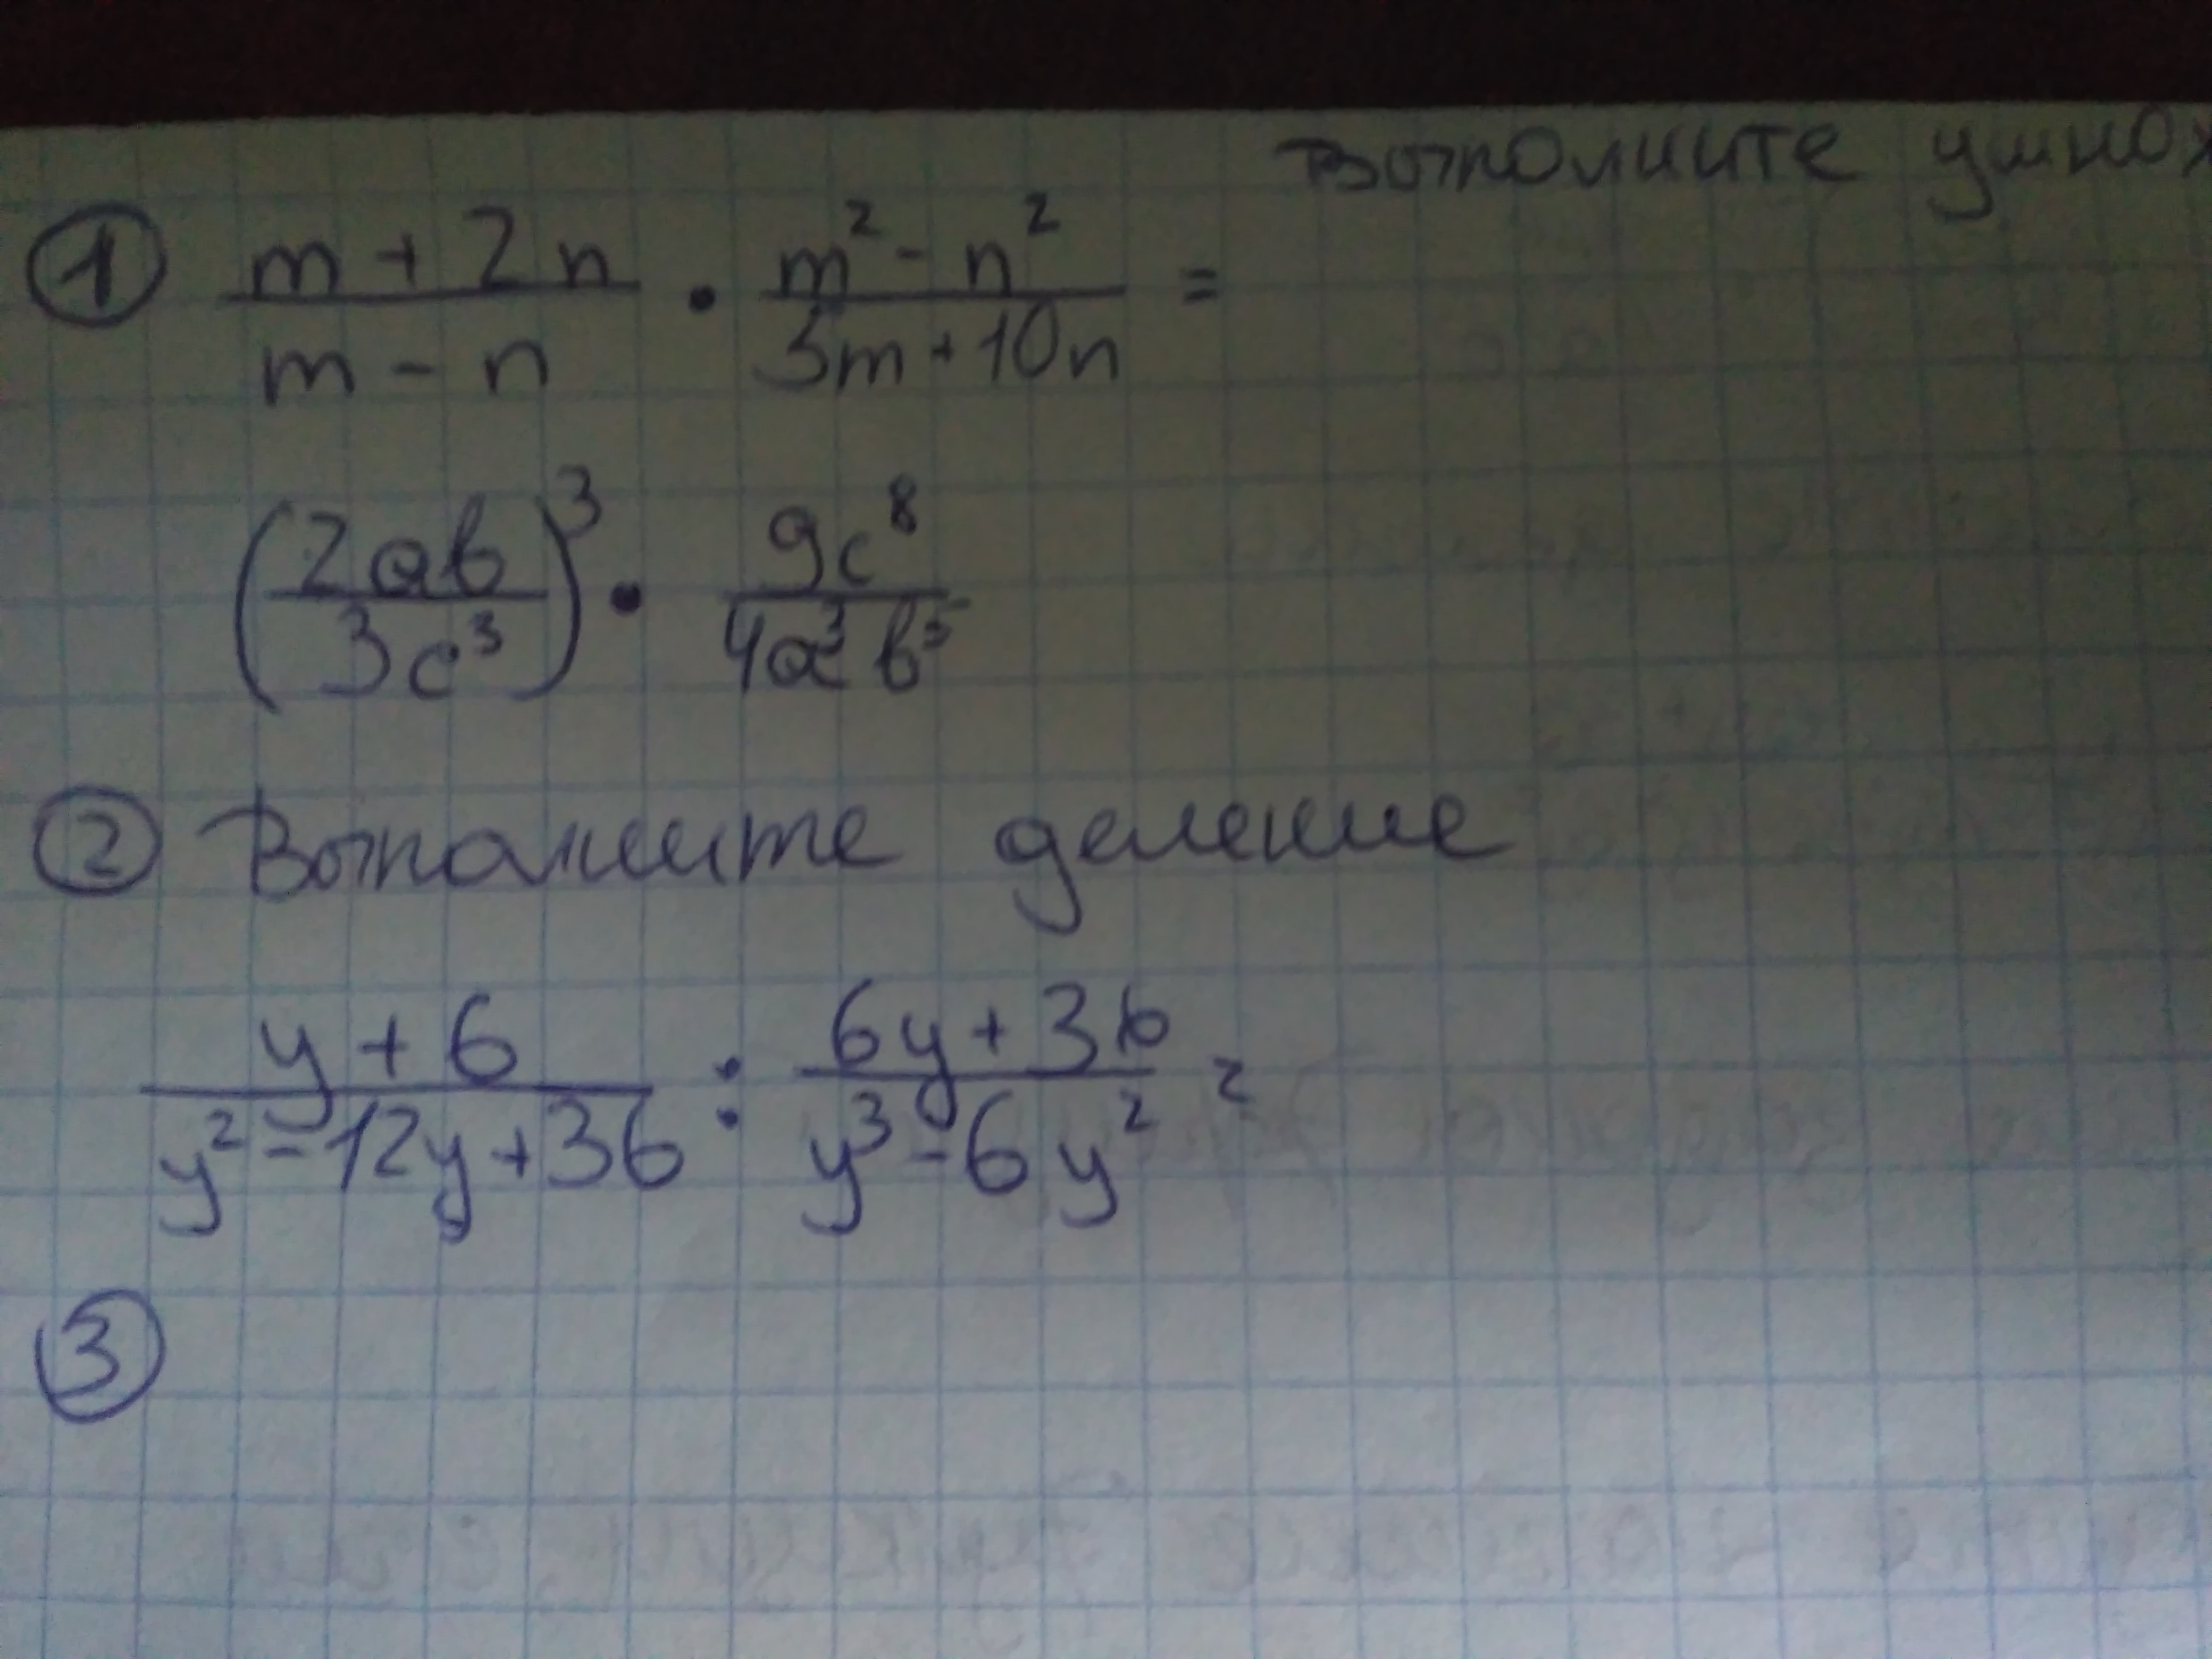 Выполните умнож
① (m + 2n)/(m - n) • (m² - n²)/(5m + 10n) =
(2ab/3c³)³ • 9c⁸/4a³b⁵
② Выполните деление
(y + 6)/(y² - 12y + 36) : (6y + 36)/(y³ - 6y²) =
③